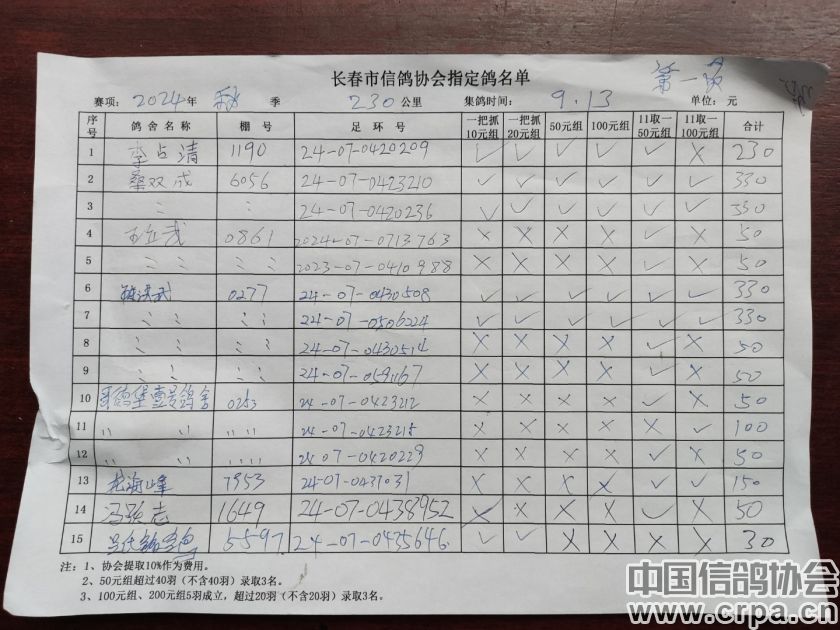 长春市信鸽协会指定鸽名单
第一页
赛项: 2024年 秋 季 230公里 集鸽时间: 9.13 单位: 元
序号 鸽舍名称 棚号 足环号 一把抓10元组 一把抓20元组 50元组 100元组 11取一50元组 11取一100元组 合计
1 李占清 1190 24-07-0420209 ✓ ✓ ✓ ✓ ✓ × 230
2 桑双成 6056 24-07-0423210 ✓ ✓ ✓ ✓ ✓ ✓ 330
3 〃 〃 24-07-0420236 ✓ ✓ ✓ ✓ ✓ ✓ 330
4 0861 2024-07-0713763 × × × × ✓ × 50
5 〃 〃 〃 〃 2023-07-0410988 × × × × ✓ × 50
6 0277 24-07-0430508 ✓ ✓ ✓ ✓ ✓ ✓ 330
7 〃 〃 〃 〃 24-07-0506224 ✓ ✓ ✓ ✓ ✓ ✓ 330
8 〃 〃 〃 〃 24-07-0430514 × × × × ✓ × 50
9 〃 〃 〃 〃 24-07-0591167 × × × × ✓ × 50
10 哥德堡壹号鸽舍 0253 24-07-0423212 × × × × ✓ × 50
11 〃 〃 〃 〃 24-07-0423215 × × × × × ✓ 100
12 〃 〃 〃 〃 24-07-0420229 × × × × ✓ × 50
13 7953 24-07-0437031 × × × × ✓ ✓ 150
14 1649 24-07-0438952 × × × × ✓ × 50
15 5597 24-07-0435646 ✓ ✓ × × × × 30
注: 1、协会提取10%作为费用。
2、50元组超过40羽（不含40羽）录取3名。
3、100元组、200元组5羽成立，超过20羽（不含20羽）录取3名。
中国信鸽协会
www.crpa.cn